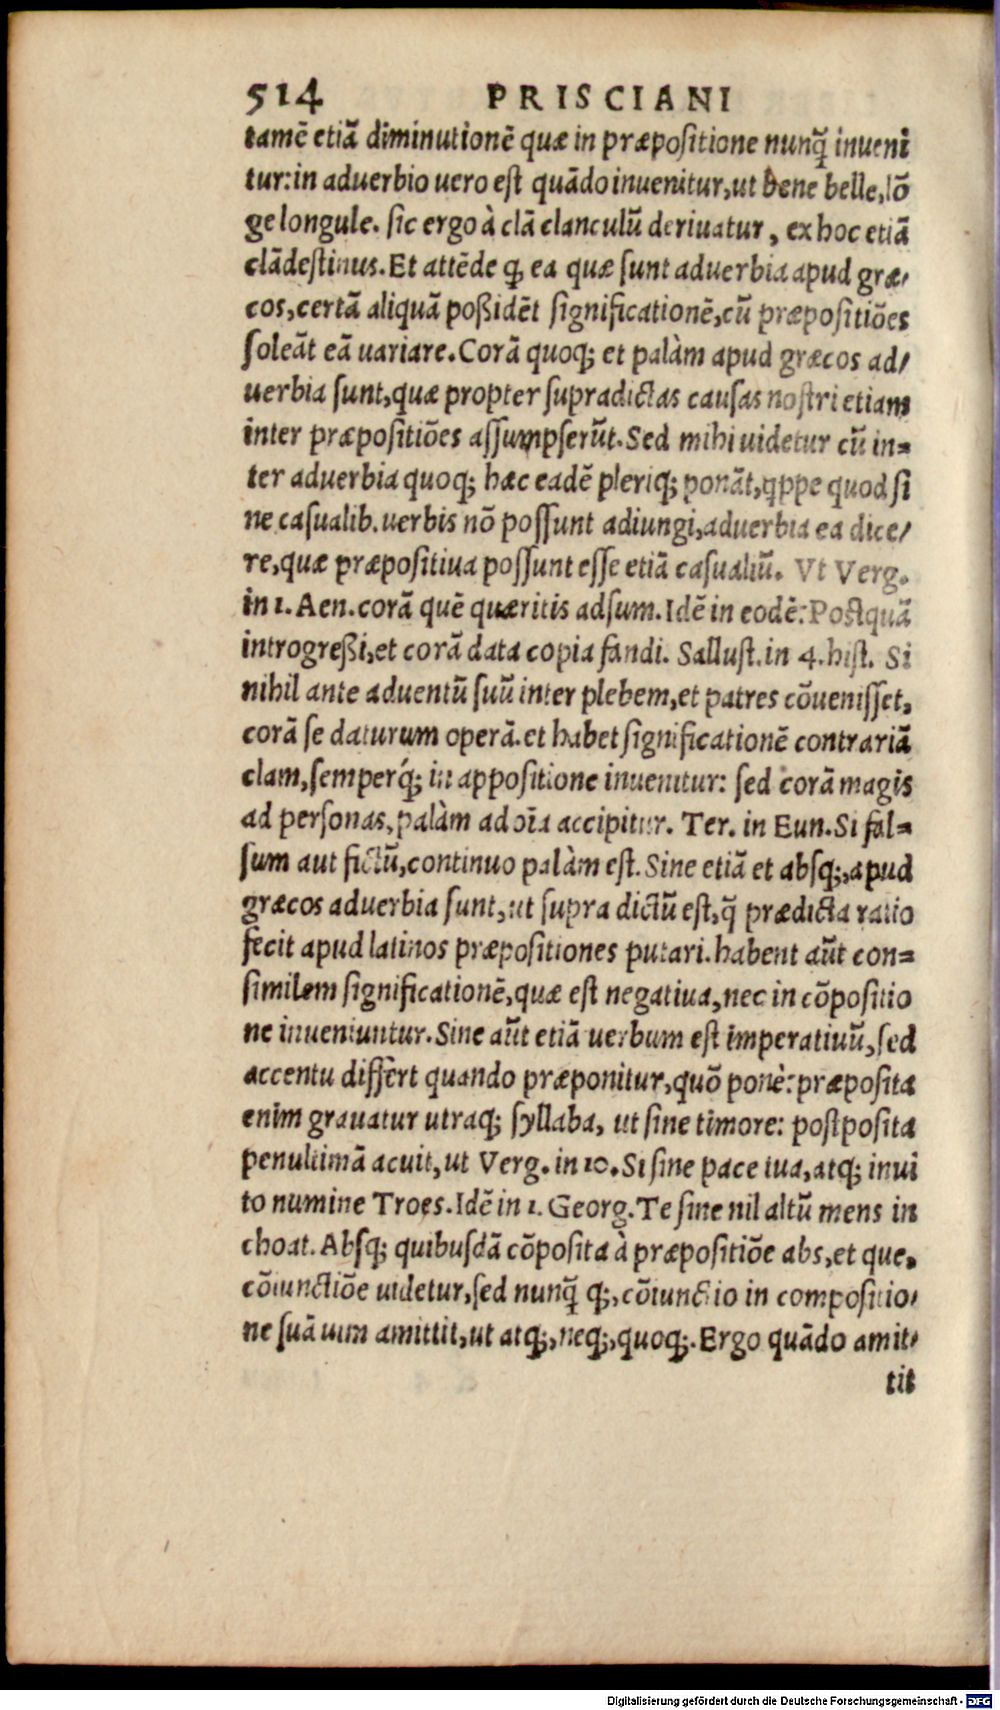 514 PRISCIANI
tamē etiā diminutionē quæ in præpositione nunq̃ inueni
tur: in aduerbio uero est quādo inuenitur, ut bene belle, lō
ge longule. sic ergo à clā clanculū deriuatur, ex hoc etiā
clādestinus. Et attēde ꝙ ea quæ sunt aduerbia apud græ⸗
cos, certā aliquā poßidēt significationē, cū præpositiōes
soleāt eā uariare. Corā quoq; et palàm apud græcos ad⸗
uerbia sunt, quæ propter supradictas causas nostri etiam
inter præpositiōes assumpserūt. Sed mihi uidetur cū in⸗
ter aduerbia quoq; hæc eadē pleriq; ponāt, qppe quod si
ne casualib. uerbis nō possunt adiungi, aduerbia ea dice⸗
re, quæ præpositiua possunt esse etiā casualiū. Vt Verg.
in 1. Aen. corā quē quæritis adsum. Idē in eodē: Postquā
introgreßi, et corā data copia fandi. Sallust. in 4. hist. Si
nihil ante aduentū suū inter plebem, et patres cōuenisset,
corā se daturum operā. et habet significationē contrariā
clam, semperq́; in appositione inuenitur: sed corā magis
ad personas, palàm ad oīa accipitur. Ter. in Eun. Si fal⸗
sum aut fictū, continuo palàm est. Sine etiā et absq;, apud
græcos aduerbia sunt, ut supra dictū est, q̃ prædicta ratio
fecit apud latinos præpositiones putari. habent aūt con⸗
similem significationē, quæ est negatiua, nec in cōpositio
ne inueniuntur. Sine aūt etiā uerbum est imperatiuū, sed
accentu differt quando præponitur, quō ponè: præposita
enim grauatur utraq; syllaba, ut sine timore: postposita
penultimā acuit, ut Verg. in 10. Si sine pace tua, atq; inui
to numine Troes. Idē in 1. Georg. Te sine nil altū mens in
choat. Absq; quibusdā cōposita à præpositiōe abs, et que,
cōiunctiōe uidetur, sed nunq̃ q;, cōiunctio in compositio⸗
ne suā uim amittit, ut atq;, neq;, quoq;. Ergo quādo amit⸗
tit
Digitalisierung gefördert durch die Deutsche Forschungsgemeinschaft - DFG